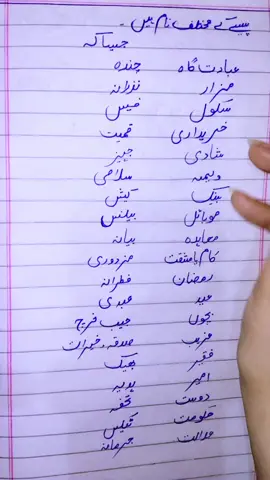 پیسے کے مختلف نام ہیں۔
جیسا کہ
عبادت گاہ چندہ
مزار نذرانہ
سکول فیس
خریداری قیمت
شادی جہیز
ولیمہ سلامی
بینک کیش
موبائل بیلنس
معاہدہ بیانہ
کام یا مشقت مزدوری
رمضان فطرانہ
عید عیدی
بچوں جیب خرچ
غریب صدقہ و خیرات
فقیر بھیک
امیر ہدیہ
دوست تحفہ
حکومت ٹیکس
عدالت جرمانہ